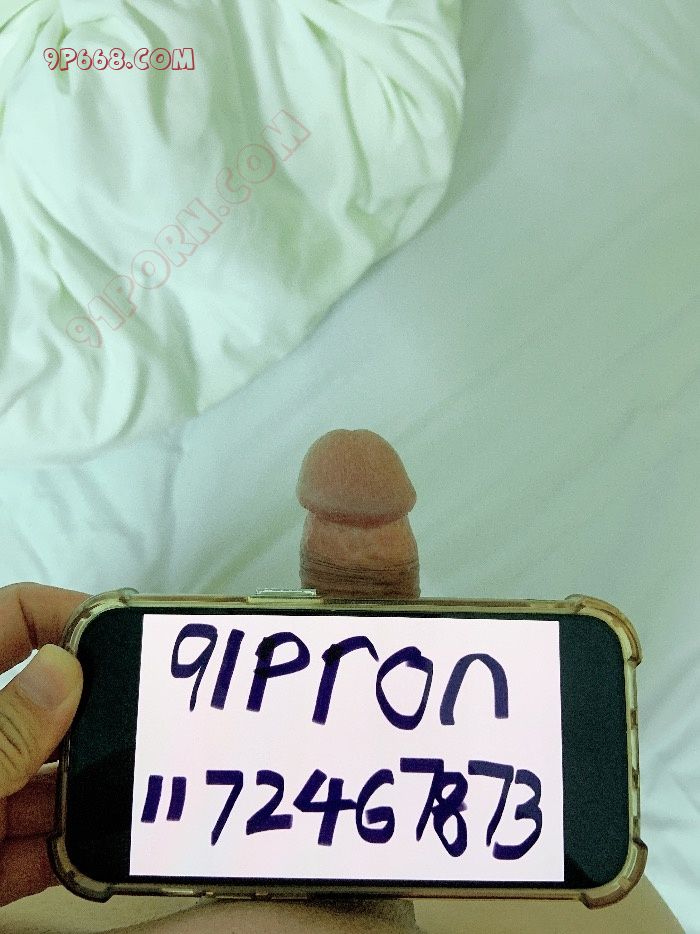 9P668.COM
91PORN.COM
91Pron
1172467873